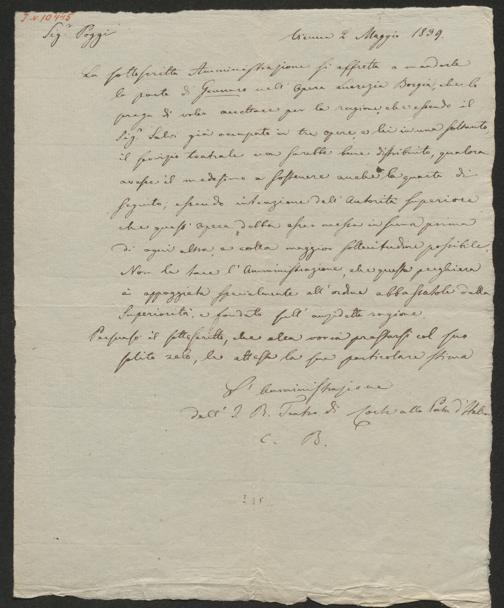 I.N. 10445
Sigr. Poggi
Vienna 2 Maggio 1839.
La sottoscritta Amministrazione si affretta a mandarle
la parte di Gennaro nell'Opera Lucrezia Borgia, che la
prega di voler accettare per la ragione, che essendo il
Sigr. Salvi già occupato in tre opere, e lei in una soltanto,
il servizio teatrale non sarebbe bene distribuito, qualora
avesse il medesimo a sostenere anche la quarta di
seguito, essendo intenzione dell'Autorità Superiore
che quest'opera debba esser messa in scena prima
di ogni altra e colla maggior sollecitudine possibile.
Non le tace l'Amministrazione, che questa preghiera
è appoggiata specialmente all'ordine abbassatole dalla
Superiorità, e fondata sull'anzidetta ragione.
Persuaso il sottoscritto, che ella vorrà prestarsi col suo
solito zelo, le attesta la sua particolare stima
L'Amministrazione
dell'I. R. Teatro di Corte alla Porta d'
C. B.